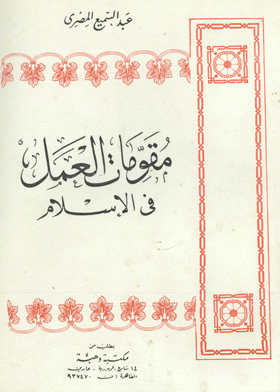 عبد السميع المصرى
مقومات العمل
فى الإسلام
يطلب من
مكتبة وهبة
١٤ شارع الجمهورية - عابدين
القاهرة : ت ٩٣٧٤٧٠